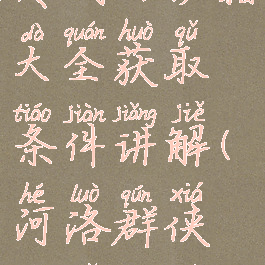 dà quán huò qǔ
大全获取
tiáo jiàn jiǎng jiě
条件讲解(
hé luò qún xiá
河洛群侠